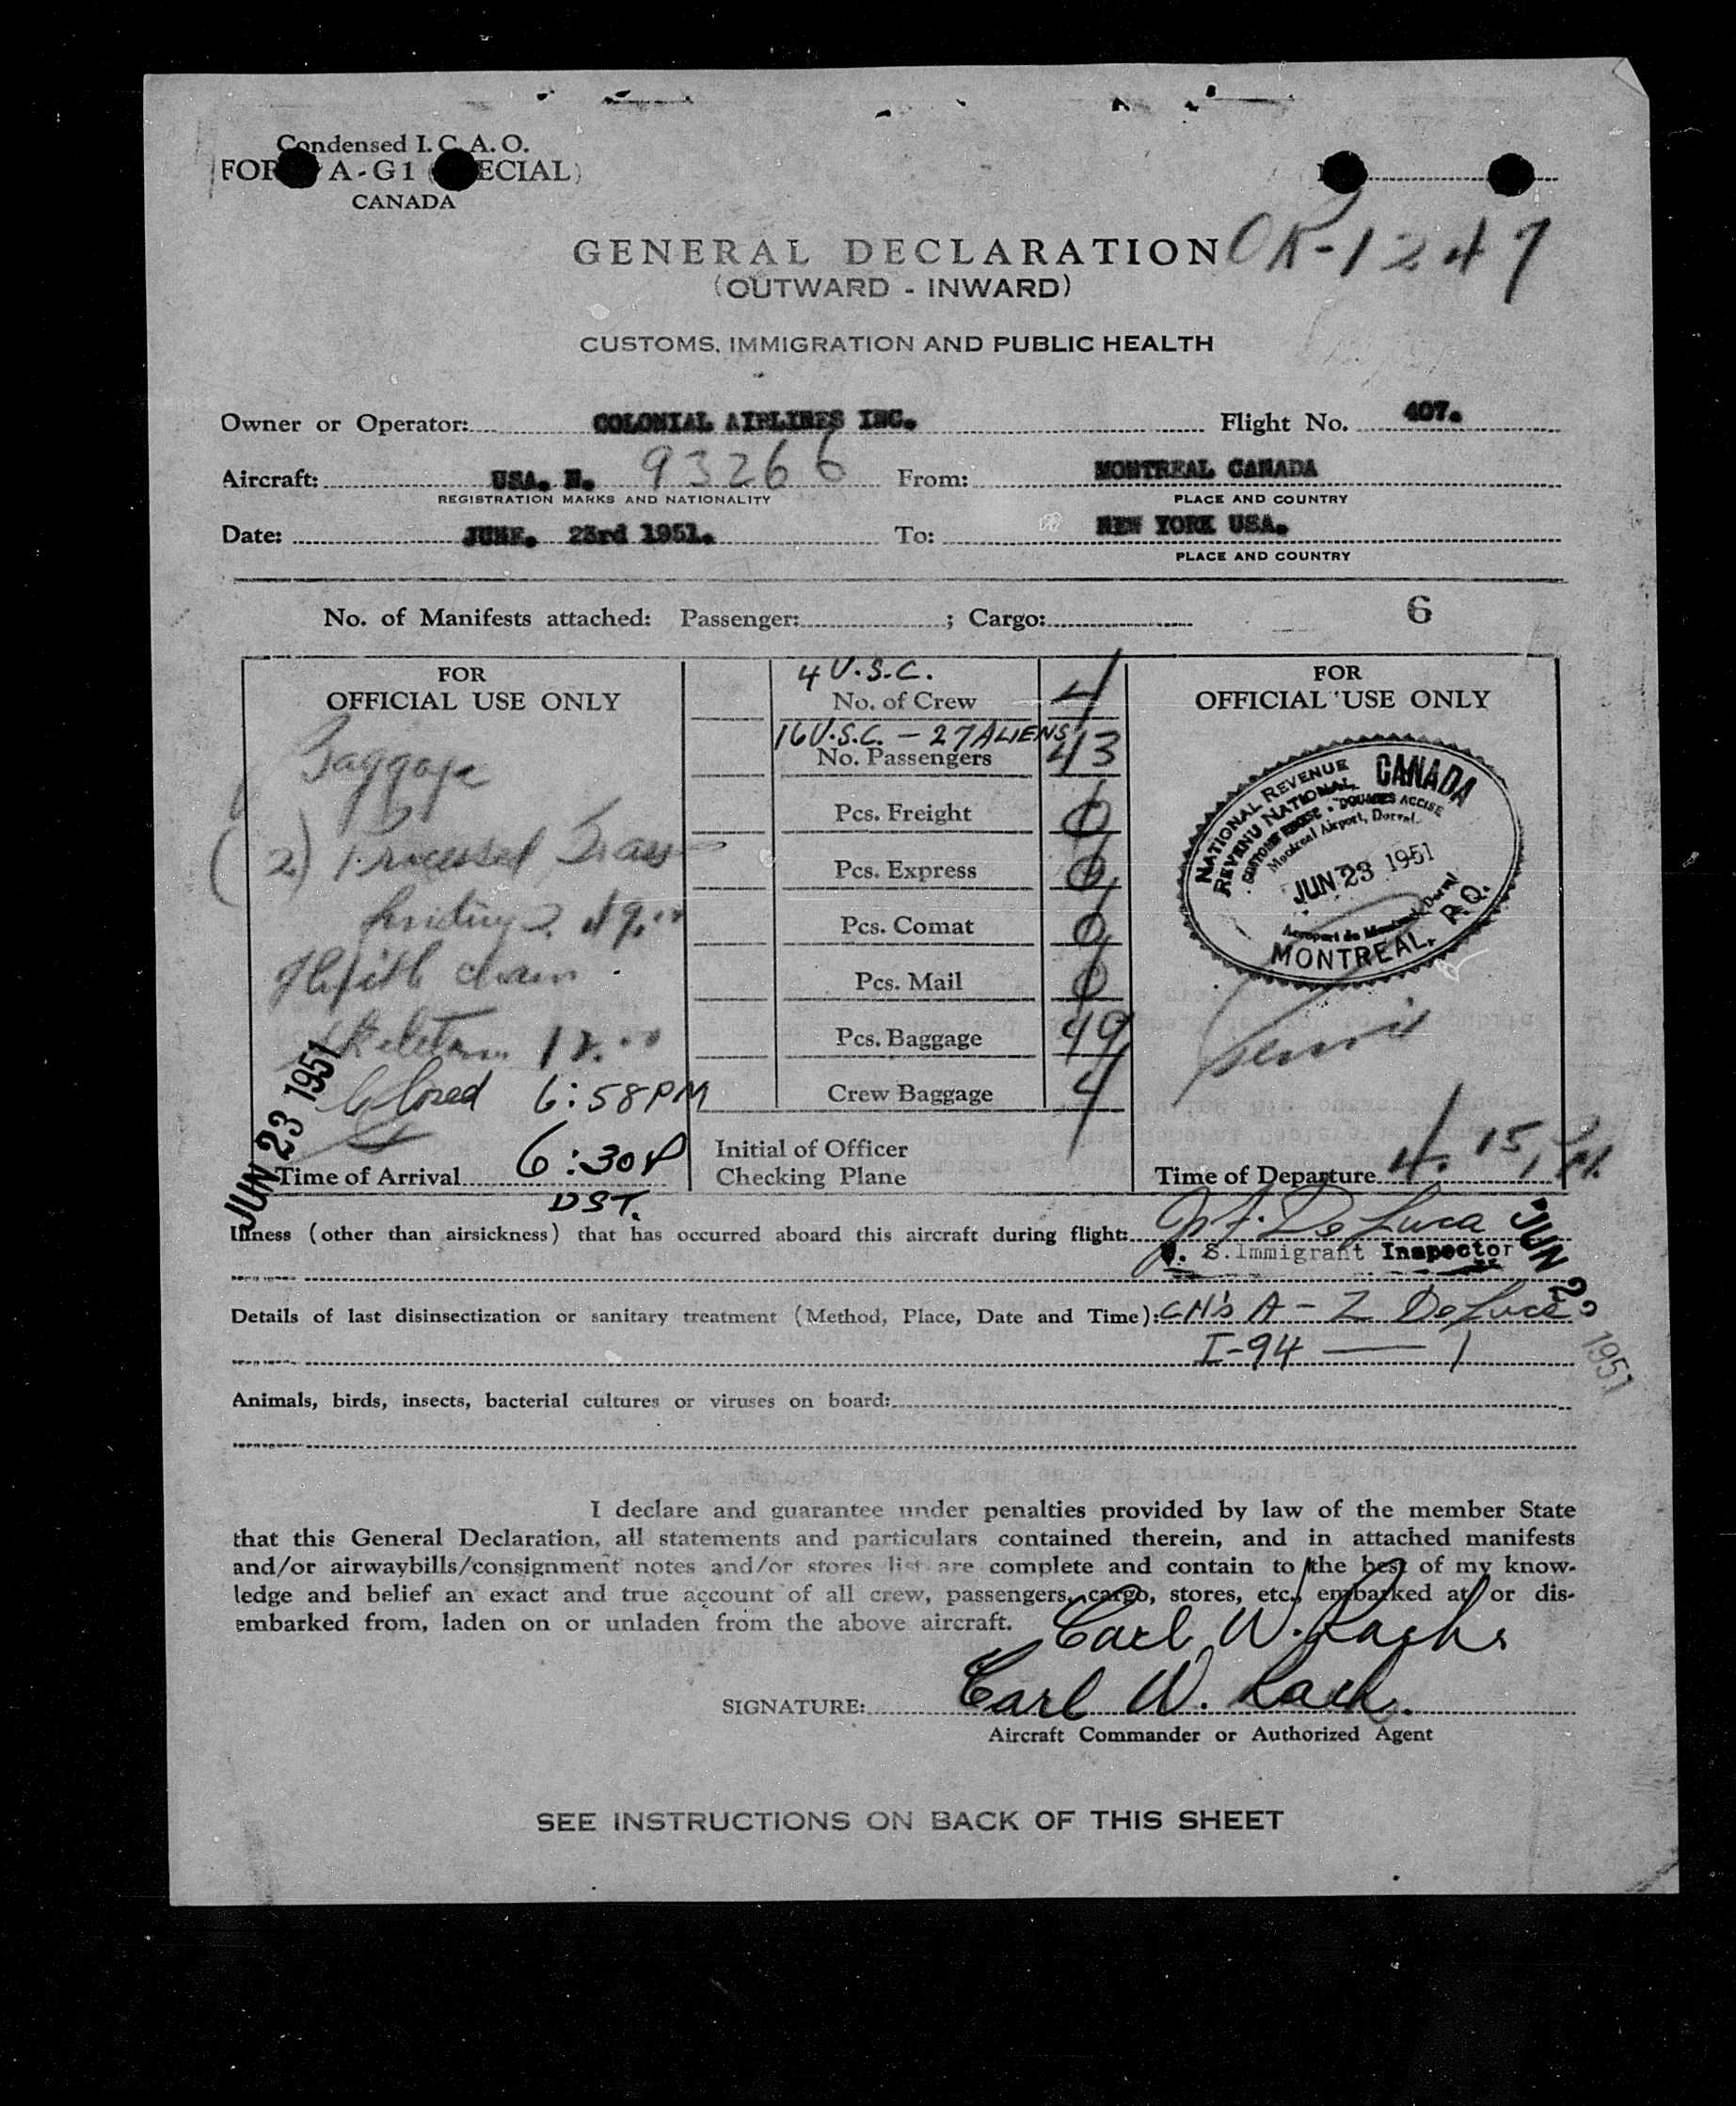 Condensed I. C. A. O.
A - G1
CANADA
OR-1247
GENERAL DECLARATION
(OUTWARD - INWARD)
CUSTOMS, IMMIGRATION AND PUBLIC HEALTH
Owner or Operator: COLONIAL AIRLINES INC. Flight No. 407.
Aircraft: USA. N. 93266 From: MONTREAL CANADA
REGISTRATION MARKS AND NATIONALITY PLACE AND COUNTRY
Date: JUNE. 23rd 1951. To: NEW YORK USA.
PLACE AND COUNTRY
No. of Manifests attached: Passenger: ; Cargo: 6
FOR
OFFICIAL USE ONLY
Baggage
2) Processed
49.00
12.00
Closed 6:58PM
Time of Arrival 6:30P
DST.
JUN 23 1951
4 U.S.C.
No. of Crew 4
16 U.S.C. - 27 ALIENS
No. Passengers 43
Pcs. Freight 0
Pcs. Express 0
Pcs. Comat 0
Pcs. Mail 0
Pcs. Baggage 49
Crew Baggage 4
Initial of Officer
Checking Plane
FOR
OFFICIAL USE ONLY
NATIONAL REVENUE CANADA
REVENU NATIONAL
DOUANES ACCISE
Montreal Airport, Dorval
JUN 23 1951
Aeroport de Montreal, Dorval
MONTREAL, P.Q.
Time of Departure 4.15
Illness (other than airsickness) that has occurred aboard this aircraft during flight: DeLuca
S. Immigrant Inspector
JUN 23 1951
Details of last disinsectization or sanitary treatment (Method, Place, Date and Time): CH's A - Z DeLuca
I-94 — 1
Animals, birds, insects, bacterial cultures or viruses on board:
I declare and guarantee under penalties provided by law of the member State
that this General Declaration, all statements and particulars contained therein, and in attached manifests
and/or airwaybills/consignment notes and/or stores list are complete and contain to the best of my know-
ledge and belief an exact and true account of all crew, passengers, cargo, stores, etc., embarked at or dis-
embarked from, laden on or unladen from the above aircraft.
Carl W.
SIGNATURE: Carl W.
Aircraft Commander or Authorized Agent
SEE INSTRUCTIONS ON BACK OF THIS SHEET